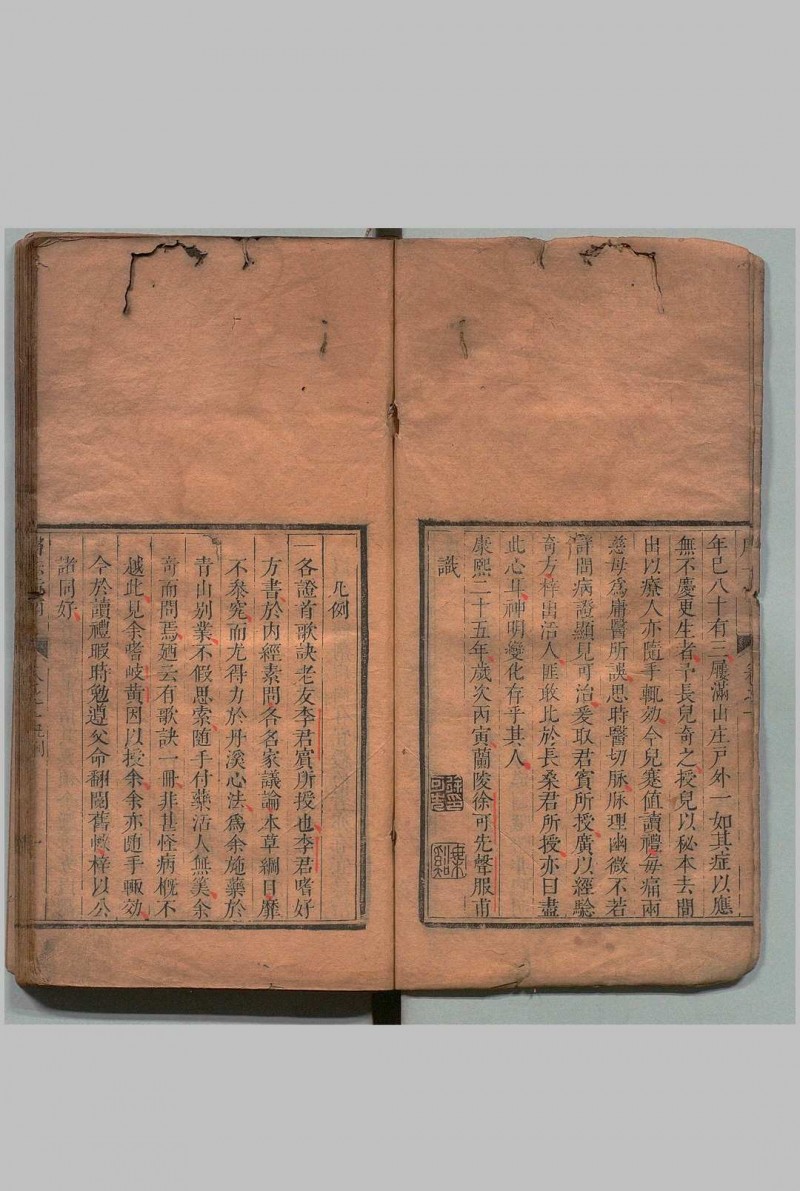 年巳八十有三屨滿山庄戸外一如其症以應
無不慶更生者予長兒奇之授兒以秘本去間
出以療人亦隨手輒効今兒寔值讀禮每痛兩
慈母爲庸醫所誤思時醫切脉脉理幽微不若
詳問病證顯見可治爰取君賓所授廣以經驗
奇方梓出活人匪敢比於長桑君所授亦曰盡
此心耳神明變化存乎其人
康熙二十五年歲次丙寅蘭陵徐可先聲服甫
識
凡例
一各證首歌訣老友李君賓所授也李君嗜好
方書於内經素問各名家議論本草綱目靡
不叅究而尤得力於丹溪心法爲余施藥於
青山别業不假思索隨手付藥活人無筭余
竒而問焉廼云有歌訣一冊非甚怪病概不
越此見余嗜岐黄因以授余余亦随手輒効
今於讀禮暇時勉遵父命翻閱舊帙梓以公
諸同好